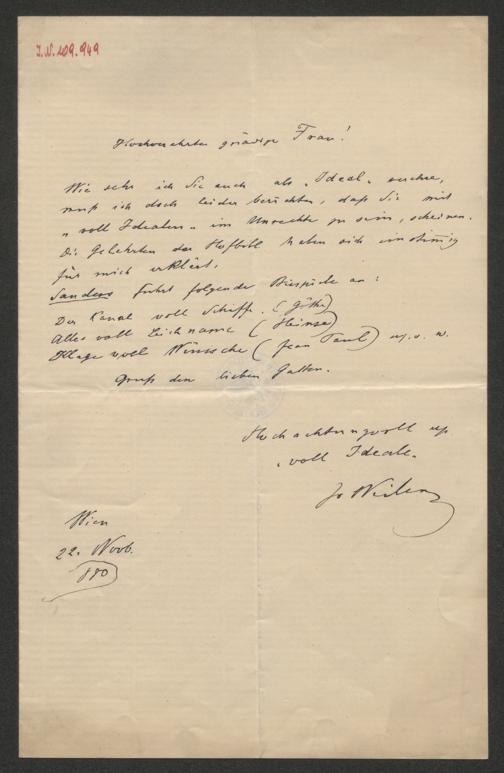 I.N. 109.949
Hochverehrte gnädige Frau!
Wie sehr ich Sie auch als „Ideal„ verehre,
muß ich doch leider berichten, daß Sie mit
„voll Idealen„ im Unrechte zu sein, scheinen.
Die Gelehrten der Hofbibl. haben sich einstimmig
für mich erklärt.
Sanders führt folgende Beispiele an:
Der Kanal voll Schiffe. (Göthe)
Alles voll Leichname (Heinse)
Klage voll Wünsche (Jean Paul) u.s.w.
Gruß dem lieben Gatten.
Hochachtungsvoll
„voll Ideale„
Jos Weilen
Wien
22. Novb.
880